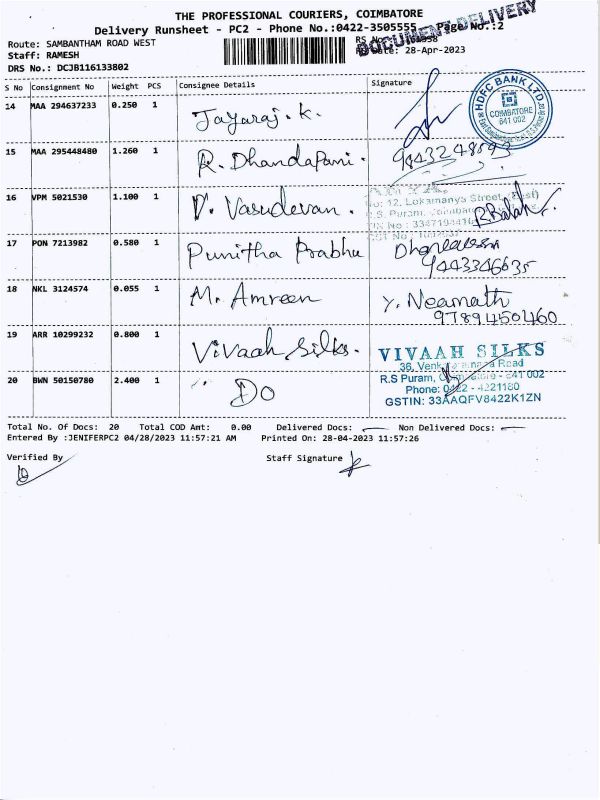 THE PROFESSIONAL COURIERS, COIMBATORE
Delivery Runsheet - PC2 - Phone No.:0422-3505555 Page No.:2
DOCUMENT DELIVERY
Route: SAMBANTHAM ROAD WEST
Staff: RAMESH Date: 28-Apr-2023
DRS No.: DCJB116133802
S No Consignment No Weight PCS Consignee Details Signature
14 MAA 294637233 0.250 1 Jayaraj. K.
HDFC BANK LTD
COIMBATORE
641 002
15 MAA 295448480 1.260 1 R. Dhandapani.
16 VPM 5021530 1.100 1 V. Vasudevan.
No: 12, Lokamanya Street,
R.S. Puram,
17 PON 7213982 0.580 1 Punitha Prabhu
9443346635
18 NKL 3124574 0.055 1 M. Amreen Y. Neamath
9789450460
19 ARR 10299232 0.800 1 Vivaah Silks.
VIVAAH SILKS
36, Road
R.S Puram, - 641 002
20 BWN 50150780 2.400 1 Do
Phone: 0422 - 4221180
GSTIN: 33AAQFV8422K1ZN
Total No. Of Docs: 20 Total COD Amt: 0.00 Delivered Docs: Non Delivered Docs:
Entered By :JENIFERPC2 04/28/2023 11:57:21 AM Printed On: 28-04-2023 11:57:26
Verified By Staff Signature